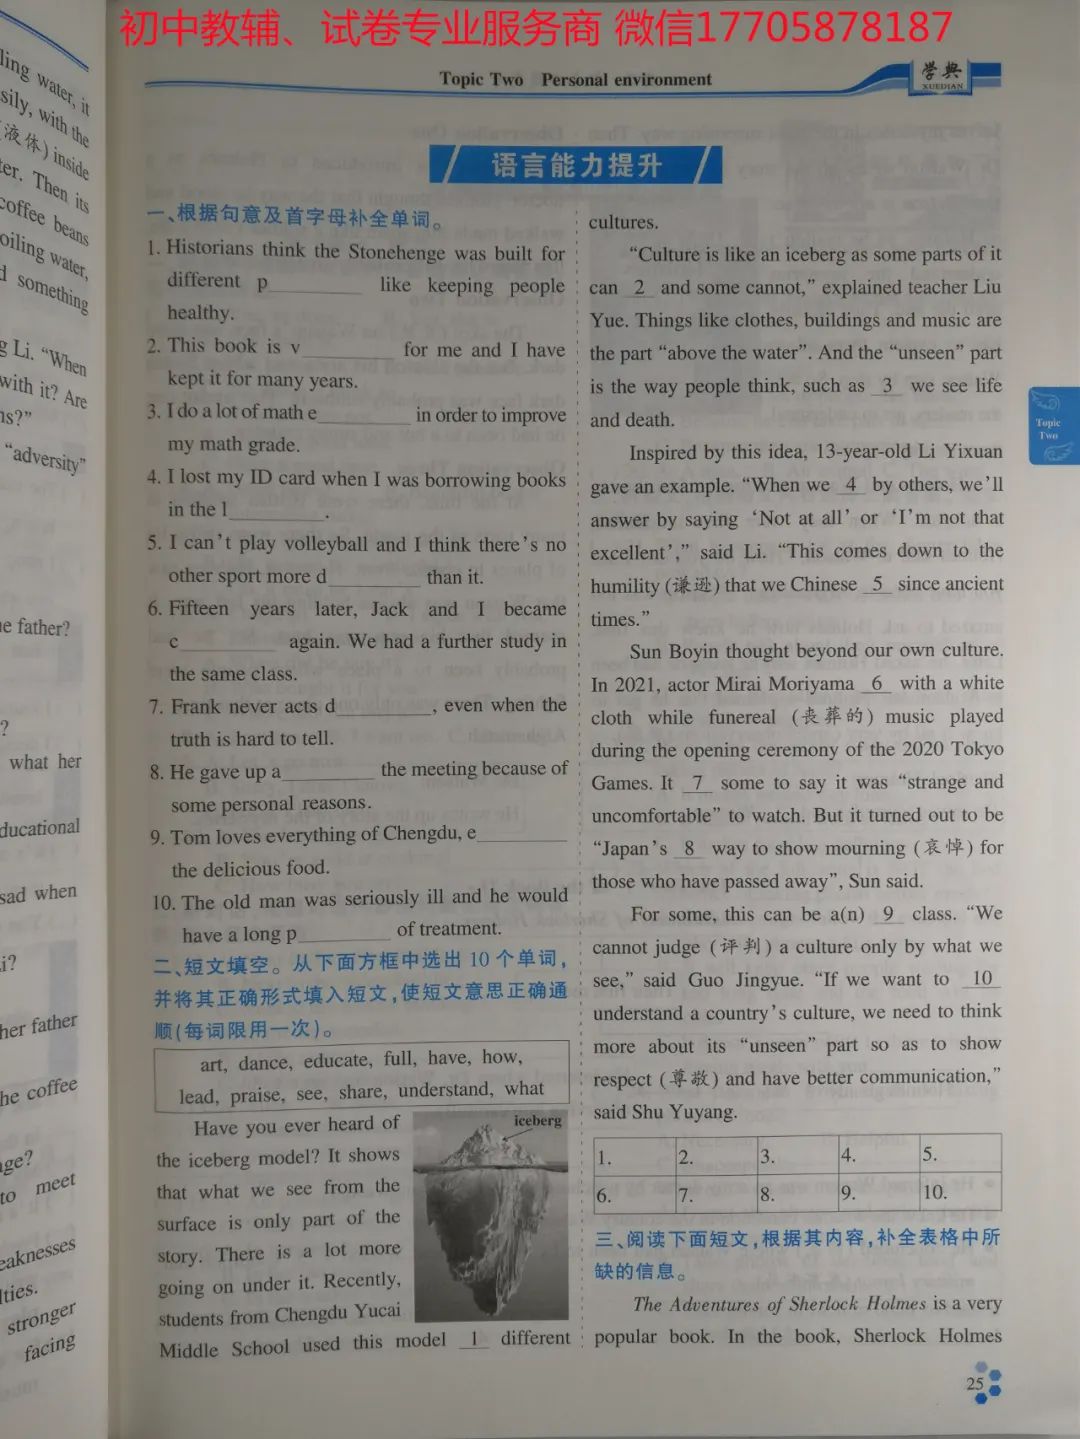 初中教辅、试卷专业服务商 微信17705878187
Topic Two Personal environment
学典
XUEDIAN
语言能力提升
一、根据句意及首字母补全单词。
1. Historians think the Stonehenge was built for
different p________ like keeping people
healthy.
2. This book is v________ for me and I have
kept it for many years.
3. I do a lot of math e________ in order to improve
my math grade.
4. I lost my ID card when I was borrowing books
in the l________.
5. I can't play volleyball and I think there's no
other sport more d________ than it.
6. Fifteen years later, Jack and I became
c________ again. We had a further study in
the same class.
7. Frank never acts d________, even when the
truth is hard to tell.
8. He gave up a________ the meeting because of
some personal reasons.
9. Tom loves everything of Chengdu, e________
the delicious food.
10. The old man was seriously ill and he would
have a long p________ of treatment.
二、短文填空。从下面方框中选出 10 个单词,
并将其正确形式填入短文,使短文意思正确通
顺(每词限用一次)。
art, dance, educate, full, have, how,
lead, praise, see, share, understand, what
Have you ever heard of
the iceberg model? It shows
that what we see from the
surface is only part of the
story. There is a lot more
going on under it. Recently,
students from Chengdu Yucai
Middle School used this model 1 different
iceberg
cultures.
"Culture is like an iceberg as some parts of it
can 2 and some cannot," explained teacher Liu
Yue. Things like clothes, buildings and music are
the part "above the water". And the "unseen" part
is the way people think, such as 3 we see life
and death.
Inspired by this idea, 13-year-old Li Yixuan
gave an example. "When we 4 by others, we'll
answer by saying 'Not at all' or 'I'm not that
excellent'," said Li. "This comes down to the
humility (谦逊) that we Chinese 5 since ancient
times."
Sun Boyin thought beyond our own culture.
In 2021, actor Mirai Moriyama 6 with a white
cloth while funereal (丧葬的) music played
during the opening ceremony of the 2020 Tokyo
Games. It 7 some to say it was "strange and
uncomfortable" to watch. But it turned out to be
"Japan's 8 way to show mourning (哀悼) for
those who have passed away", Sun said.
For some, this can be a(n) 9 class. "We
cannot judge (评判) a culture only by what we
see," said Guo Jingyue. "If we want to 10
understand a country's culture, we need to think
more about its "unseen" part so as to show
respect (尊敬) and have better communication,"
said Shu Yuyang.
1. 2. 3. 4. 5.
6. 7. 8. 9. 10.
三、阅读下面短文,根据其内容,补全表格中所
缺的信息。
The Adventures of Sherlock Holmes is a very
popular book. In the book, Sherlock Holmes
Topic
Two
25
ling water, it
sily, with the
(液体) inside
ter. Then its
coffee beans
oiling water,
d something
g Li. "When
with it? Are
ns?"
"adversity"
he father?
?
what her
ducational
sad when
i?
her father
he coffee
age?
to meet
eaknesses
lties.
stronger
facing